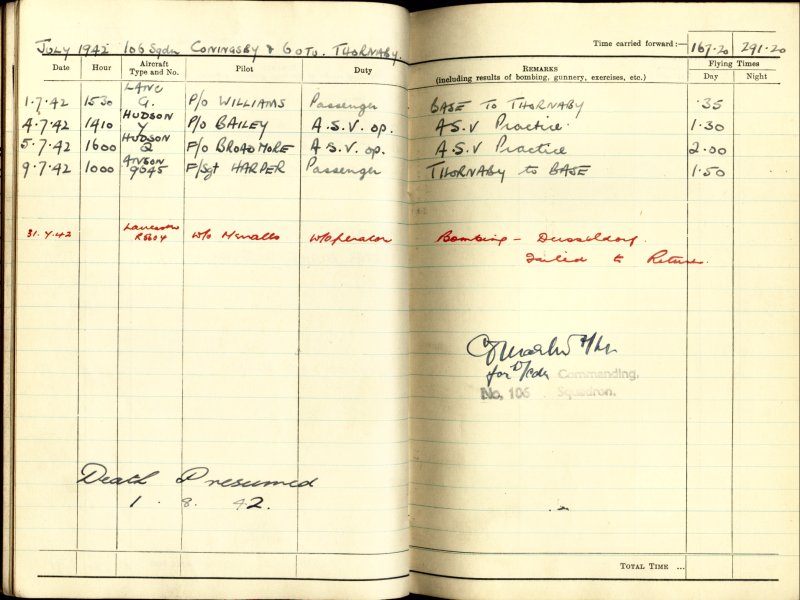 JULY 1942 106 Sqdn CONINGSBY & 6 OTU. THORNABY.
Time carried forward:— 167.20 291.20
Date Hour Aircraft Type and No. Pilot Duty REMARKS (including results of bombing, gunnery, exercises, etc.) Flying Times Day Night
1.7.42 1530 LANC G. P/O WILLIAMS Passenger BASE TO THORNABY .35
4.7.42 1410 HUDSON Y P/O BAILEY A.S.V. op. A.S.V Practice. 1.30
5.7.42 1600 HUDSON Q F/O BROADMORE A.S.V. op. A.S.V Practice 2.00
9.7.42 1000 ANSON 9645 F/Sgt HARPER Passenger THORNABY to BASE 1.50
31.7.42 Lancaster R5604 W/O W/Operator Bombing – Dusseldorf.
Failed to Return.
for W/Cdr Commanding,
No. 106 Squadron.
Death Presumed
1. 8. 42.
TOTAL TIME ...